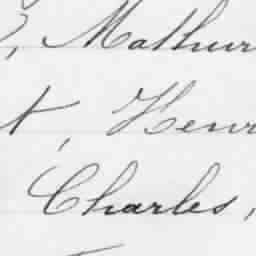 , Mathur
t, Henr
Charles,